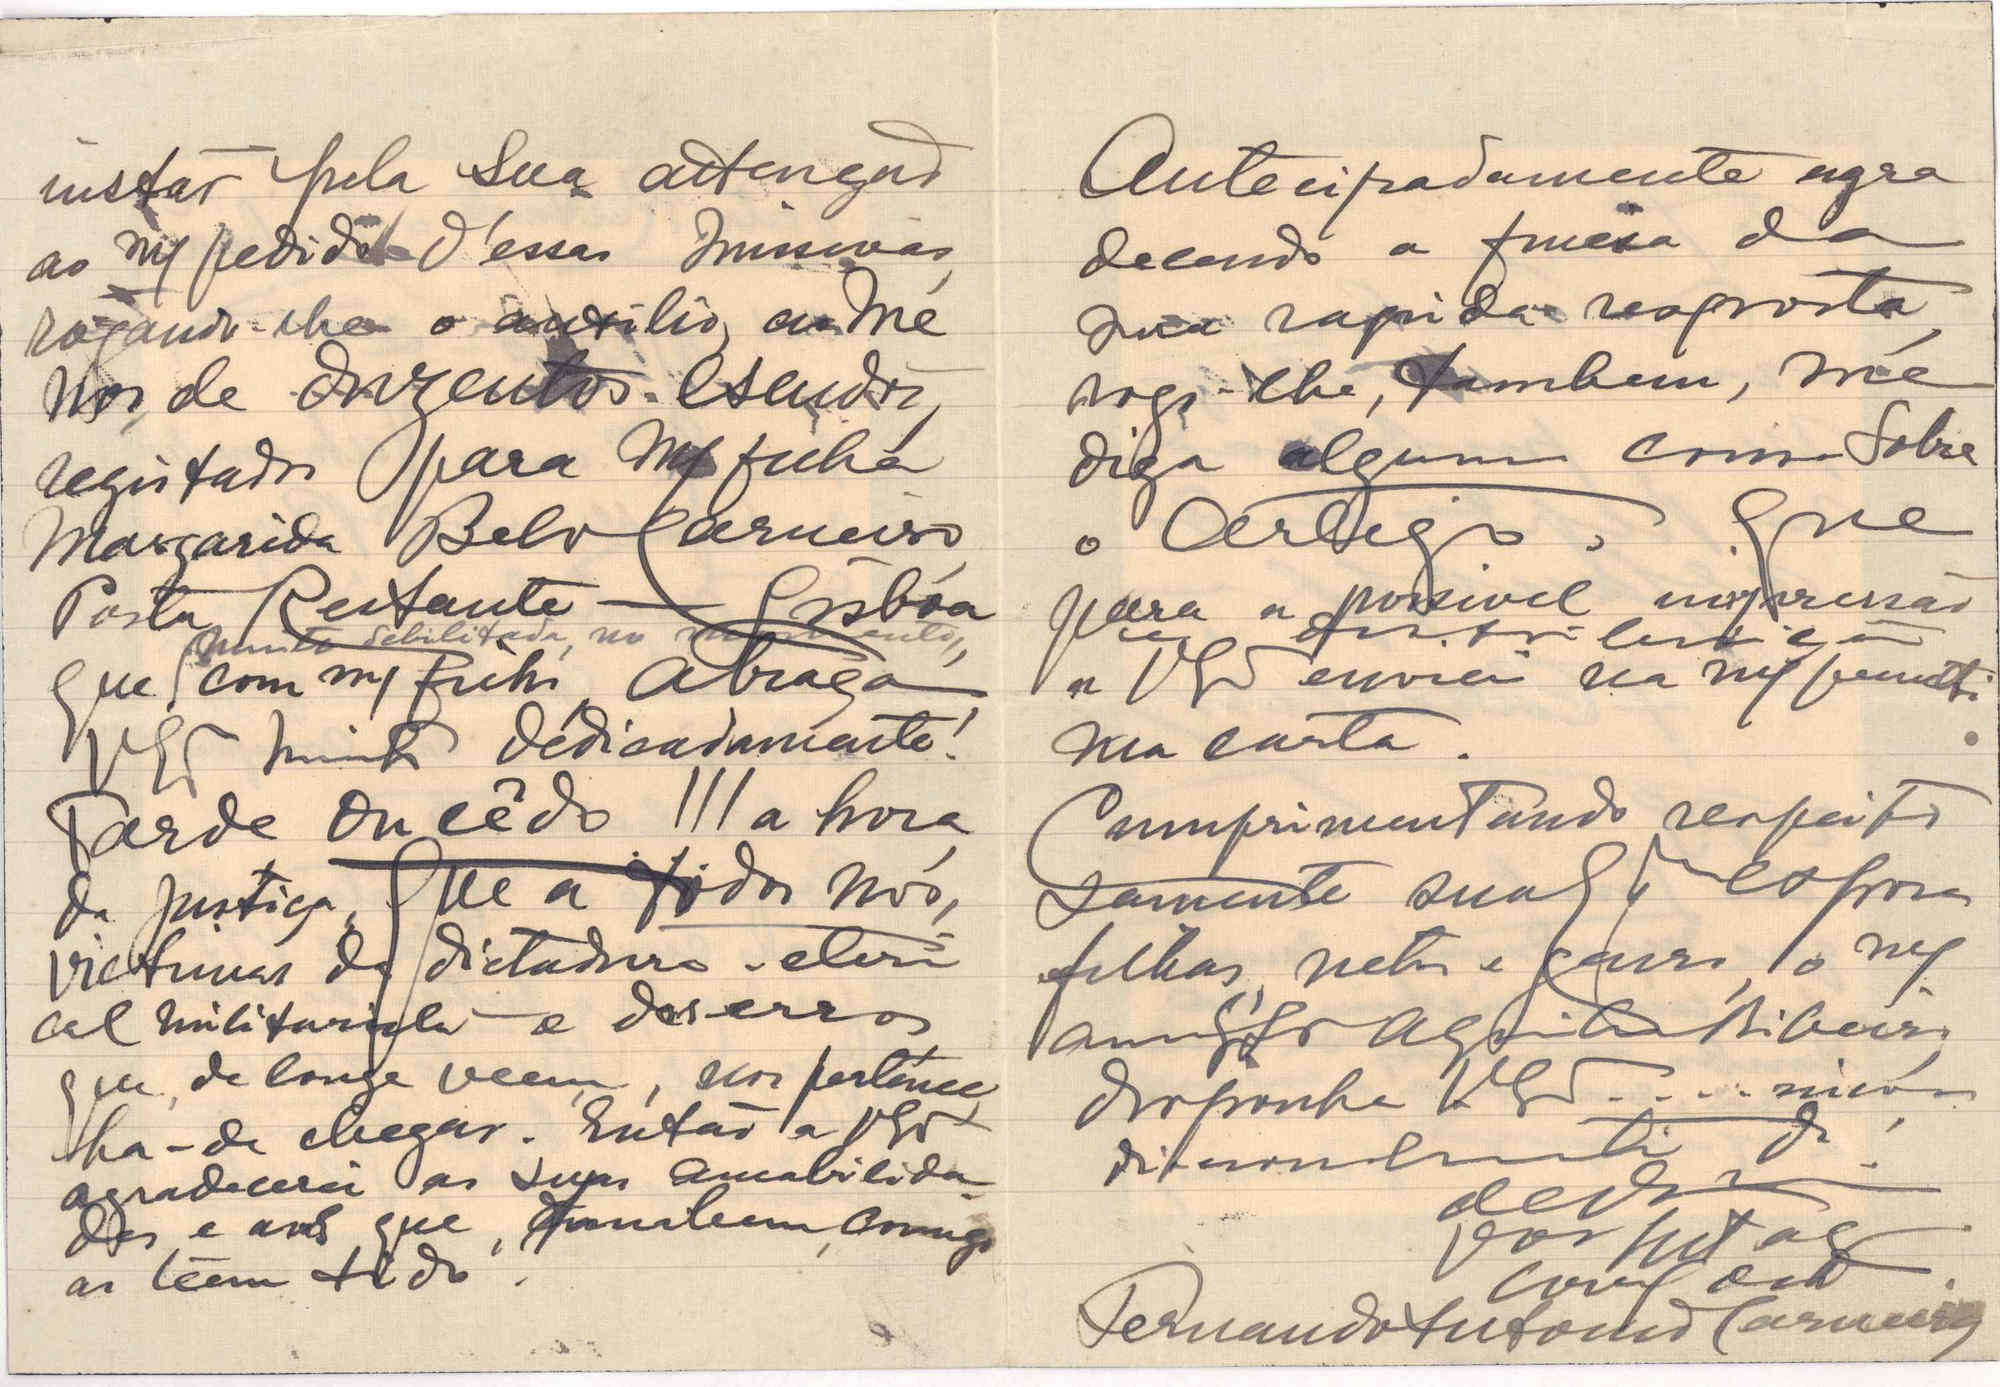 instar pela sua attenção
ao mº pedido d'essas missivas,
rogando-lhe o auxilio, ao mé
nos, de duzentos escudos,
registados para mª filha
Margarida Belo Carneiro,
Posta Restante — Lisbôa
muito debilitada, no momento,
que, com mº filho, abraça
V. Ex.ª muito dédicadamente!
Tarde ou cêdo !!! a hora
da justiça, que a todos nós,
victimas da dictadura - cleri
cal militarista e dos erros
que, de longe veem, nos pertence,
ha-de chegar. Então a V. Ex.ª
agradecerei as suas amabilida-
des e aos que, tambem, comigo
as teem tido.
Antecipadamente agra
decendo a fineza da
sua rapida resposta,
rogo-lhe, tambem, mé
diga alguma coisa sobre
o Artigo, que
para a possivel impressão
e distribuição
a V. Ex.ª enviei na mª penulti
ma carta.
Cumprimentando respeito
samente sua Ex.ma esposa
filhas, netos e genro, o mº
amigo Aquilino Ribeiro,
disponha V. Ex.ª ..... 
de
Fernando Antonio Carneiro